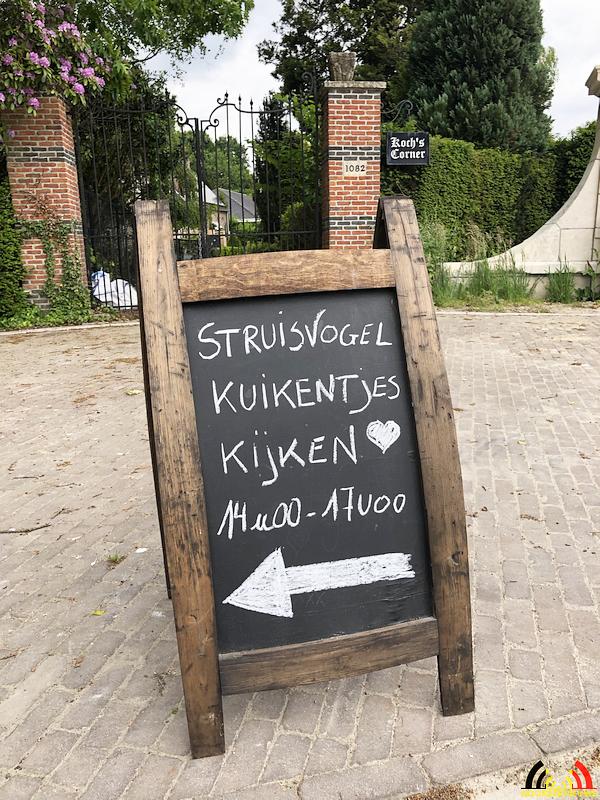 Koch's
Corner
1082
STRUISVOGEL
KUIKENTJES
KIJKEN
14u00-17u00